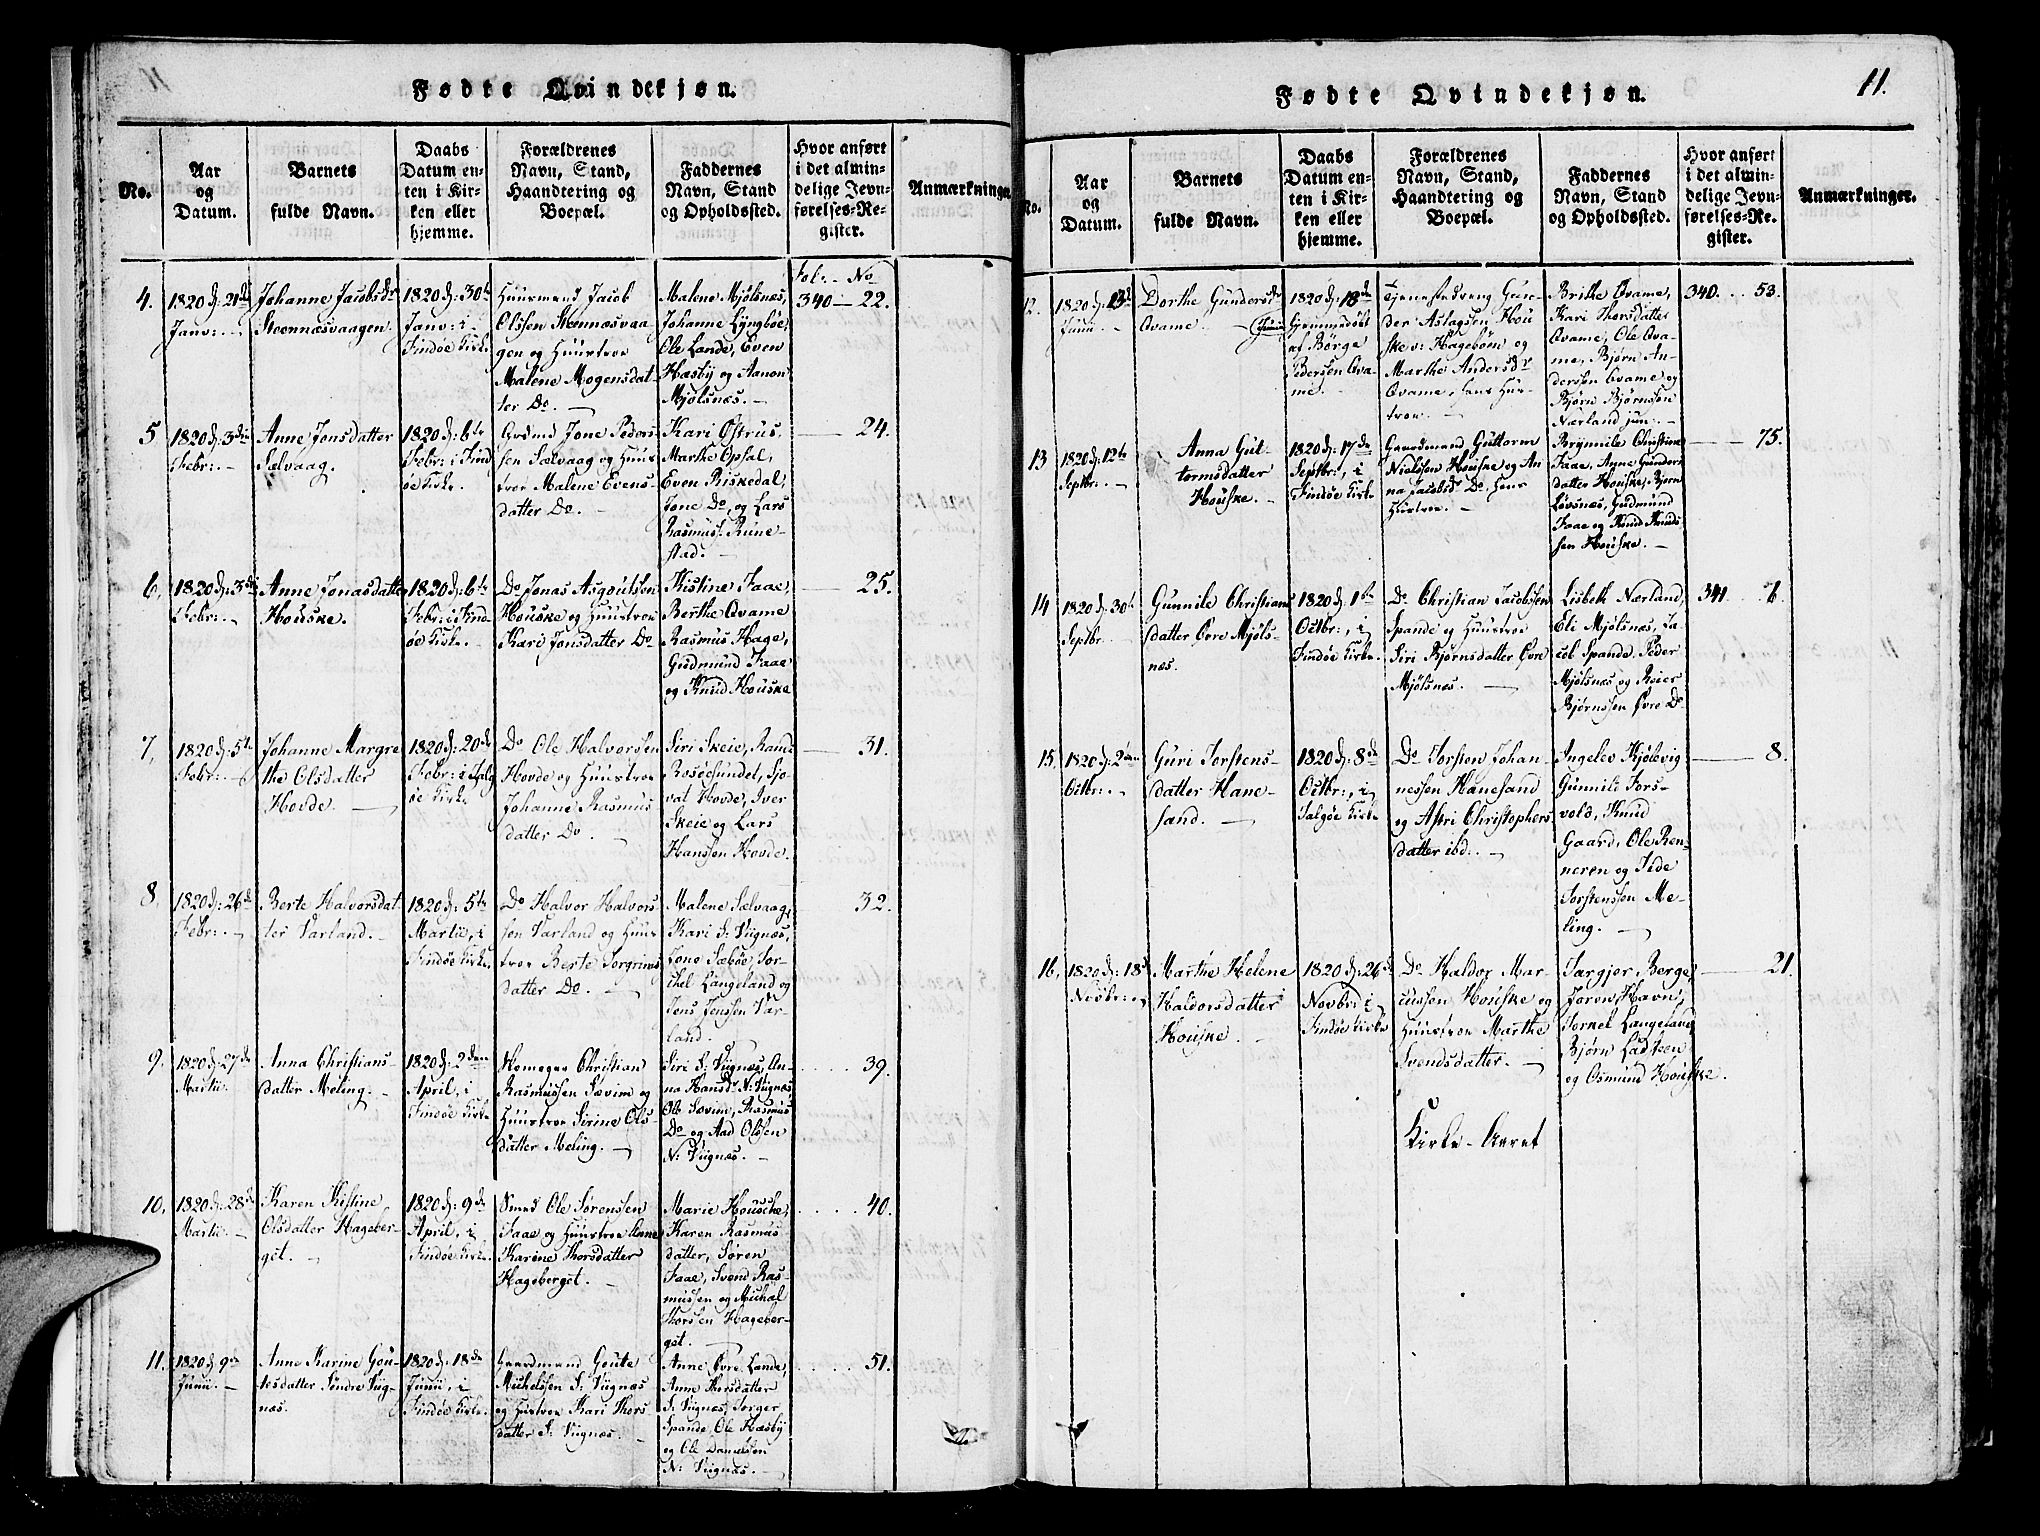 Fødte Qvindekjøn.
No.
Aar
og
Datum.
Barnets
fulde Navn.
Daabs
Datum en-
ten i Kir-
ken eller
hjemme.
Forældrenes
Navn, Stand,
Haandtering og
Boepæl.
Faddernes
Navn, Stand
og Opholdssted.
Hvor anført
i det almin-
delige Jevn-
førelses-Re-
gister.
Anmærkninger
Fol. No
4.
1820 d: 21de
Janv: -
Johanne Jacobsdr
Steennæsvaagen
1820 d: 30te
Janv: i
Findøe Kirke
Huusmand Jacob
Olssen Steennæsvaa
gen og Huustroe
Malene Mogensdat-
ter Do. -
Malene Mjølsnæs,
Johanne Lyngbøe,
Ole Lande, Even
Hæsby og Aanon
Mjølsnæs. -
340 - 22.
5
1820 d: 3die
Febr: -
Anne Jonsdatter
Sælvaag.
1820 d: 6te
Febr: i Find
øe Kirke.
Grdmd Jone Peders-
sen Sælvaag og Huus
troe Malene Evens-
datter Do. -
Kari Østhus,
Marthe Opsal,
Even Riskedal,
Jone Do, og Lars
Rasmuss: Rune-
stad. -
24.
6.
1820 d: 3die
Febr: -
Anne Jonasdatter
Houske.
1820 d: 6te
Febr: i Find
øe Kirke.
Do Jonas Asgoutsen
Houske og Huustroe
Kari Jonsdatter Do
Kistine Faae,
Berthe Qvame
Rasmus Hage,
Gudmund Faae
og Knud Houske
25.
7.
1820 d: 5te
Febr: -
Johanne Margre
the Olsdatter
Hovde. -
1820 d: 20de
Febr: i Talg
øe Kirke
Do Ole Halvorsen
Hovde og Huustroe
Johanne Rasmus
datter Do. -
Siri Skeie, Rand
Rosøesundet, Sjo
vat Hovde, Iver
Skeie og Lars
Hanssen Hovde.
31.
8.
1820 d: 26de
Febr: -
Berte Halvorsdat
ter Varland. -
1820 d: 5te
Martii, i
Findøe Kirke.
Do Halvor Halvors
sen Varland og Huus
troe Berte Torgrims
datter Do. -
Malene Sælvaag,
Kari S: Viignæs,
Jone Sæbøe, Tor-
chel Langeland og
Jens Jenssen Var-
land.
32.
9.
1820 d: 27de
Martii.
Anna Christians-
datter Meling. -
1820 d: 2den
April, i
Findøe Kirke
Christian
Rasmussen Sævim og
Huustroe Sirine Ols-
datter Meling. -
Siri S: Viignæs, An-
na Hansdr N: Viignæs,
Ole Sovim, Rasmus
Do og Aad Olssen
N: Viignæs. -
39.
10.
1820 d: 28de
Martii. -
Karen Kistine
Olsdatter Hageber-
get. -
1820 d: 9de
April, i
Findøe Kirke.
Smed Ole Sørenssen
Faae og Huustroe Anne
Karine Thorsdatter
Hageberget. -
Marie Housche,
Karen Rasmus
datter, Søren
Faae, Svend Ras-
mussen og Michal
Thorsen Hageber-
get. -
40.
11.
1820 d: 9de
Junii. -
Anne Karine Gou-
tesdatter Søndre Viig-
næs.
1820 d: 18de
Junii, i
Findøe Kirke.
Gaardmand Goute
Michelssen S: Viignæs
og Hustroe Kari Thors
datter S: Viignæs. -
Anne Øvre Lande,
Anne Thorsdatter
S: Viignæs, Torger
Spande, Ole Hæsby
og Ole Danielssen
N: Viignæs. -
51.
Fødte Qvindekjøn.
11.
No.
Aar
og
Datum.
Barnets
fulde Navn.
Daabs
Datum en-
ten i Kir-
ken eller
hjemme.
Forældrenes
Navn, Stand,
Haandtering og
Boepæl.
Faddernes
Navn, Stand
og Opholdssted.
Hvor anført
i det almin-
delige Jevn-
førelses-Re-
gister.
Anmærkninger.
12.
1820 d: 13de
Junii. -
Dorthe Gundersdr
Qvame. -
1820 d: 18de
Hjemmedøbt
af Børge
Pedersen Qva-
me.
Tjenestedreng Gun-
der Aslagsen Hou
ske v: Hagebøen og
Marthe Andersdr
Qvame, hans Huu-
stroe. -
Brithe Qvame,
Kari Thorsdatter
Qvame, Ole Qva-
me, Bjørn An-
dersen Qvame og
Bjørn Bjørnssen
Nærland jun. -
340. 53.
13
1820 d: 12te
Septbr: -
Anna Gut-
tormsdatter
Houske. -
1820 d: 17de
Septbr:, i
Findøe Kirke
Gaardmand Guttorm
Nielssen Houske og An-
na Jacobsdr Do, hans
Huustroe. -
Brynnile Christine
Faae, Anne Gunders
datter Houske, Bjørn
Løvsnæs, Gudmund
Faae og Knud Knuds
sen Houske. -
75.
14
1820 d: 30te
Septbr.
Gunnile Christians
datter Øvre Mjøls-
næs.
1820 d: 1ste
Octbr:, i
Findøe Kirke.
Do Christian Jacobssen
Spande og Huustroe
Siri Bjørnsdatter Øvre
Mjølsnæs. -
Lisbeth Nærland,
Eli Mjølsnæs, Ja-
cob Spande, Peder
Mjølsnæs og Reier
Bjørnssen Øvre Do
341. 6.
15.
1820 d: 2den
Octbr: -
Guri Torstens-
datter Hane-
sand. -
1820 d: 8de
Octbr:, i
Talgøe Kirke
Do Torsten Johan-
nessen Hanesand
og Astri Christophers
datter ibd. -
Ingelev Kjølevig
Gunnild Tors-
vold, Knud
Gaard, Ole Ren-
neren og Tede
Torstenssen Me-
ling. -
8.
16.
1820 d: 18de
Novbr: -
Marthe Helene
Haldorsdatter
Houske. -
1820 d: 26de
Novbr: i
Findøe Kirke
Do Haldor Mar-
cussen Houske og
Huustroe Marthe
Svendsdatter. -
Targjer Berge,
Joren Havn,
Tornel Langeland,
Bjørn Ladsteen
og Osmund Houske.
21.
Kirke-Aaret